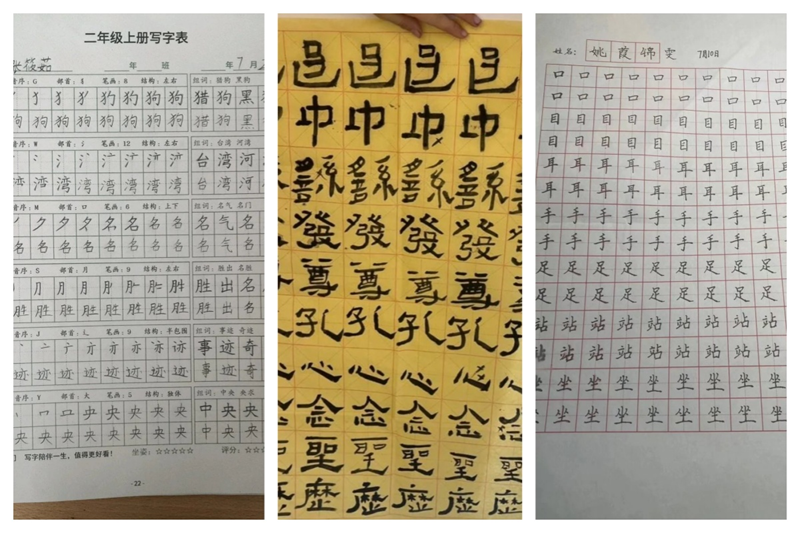 二年级上册写字表
张筱茹 年 班 年7月
音序：G 部首：犭 笔画：8 结构：左右 组词：猎狗 黑狗
丿 犭 犭 犳 狗 狗 狗 猎 狗 黑
狗 狗 狗 狗 狗 狗 狗 猎 狗 黑
音序：W 部首：氵 笔画：12 结构：左右 组词：台湾 河湾
湾 湾 台 湾 河
湾 湾 湾 湾 湾 湾 台 湾 河
音序：M 部首：口 笔画：6 结构：上下 组词：名气 名门
夕 夕 名 名 名 名 气 名
名 名 名 名 名 名 名 名 气 名
音序：S 部首：月 笔画：9 结构：左右 组词：胜出 名胜
月 月 胜 胜 胜 出 名
胜 胜 胜 胜 胜 胜 胜 胜 出 名
音序：J 部首：辶 笔画：9 结构：半包围 组词：事迹 奇迹
亠 亦 亦 迹 事 迹 奇
迹 迹 迹 迹 迹 迹 迹 事 迹 奇
音序：Y 部首：大 笔画：5 结构：独体 组词：中央 央求
央 央 央 央 中 央 央
央 央 央 央 央 央 央 中 央 央
写字陪伴一生，值得更好看！ 坐姿：☆☆☆☆☆ 评分：☆☆☆
·22·
邑 邑 邑 邑
巾 巾 巾 巾
發 發 發 發
尊 尊 尊 尊
孔 孔 孔 孔
心 心 心 心
念 念 念 念
聖 聖 聖 聖
歷 歷 歷 歷
姓名： 姚 葭 锦 雯 7月10日
口 口 口 口 口 口 口 口 口
口 口 口 口 口 口 口 口 口
目 目 目 目 目 目 目 目 目
目 目 目 目 目 目 目 目 目
耳 耳 耳 耳 耳 耳 耳 耳 耳
耳 耳 耳 耳 耳 耳 耳 耳 耳
手 手 手 手 手 手 手 手 手
手 手 手 手 手 手 手 手 手
足 足 足 足 足 足 足 足 足
足 足 足 足 足 足 足 足 足
站 站 站 站 站 站 站 站
站 站 站 站 站 站 站 站
坐 坐 坐 坐 坐 坐 坐 坐
坐 坐 坐 坐 坐 坐 坐 坐